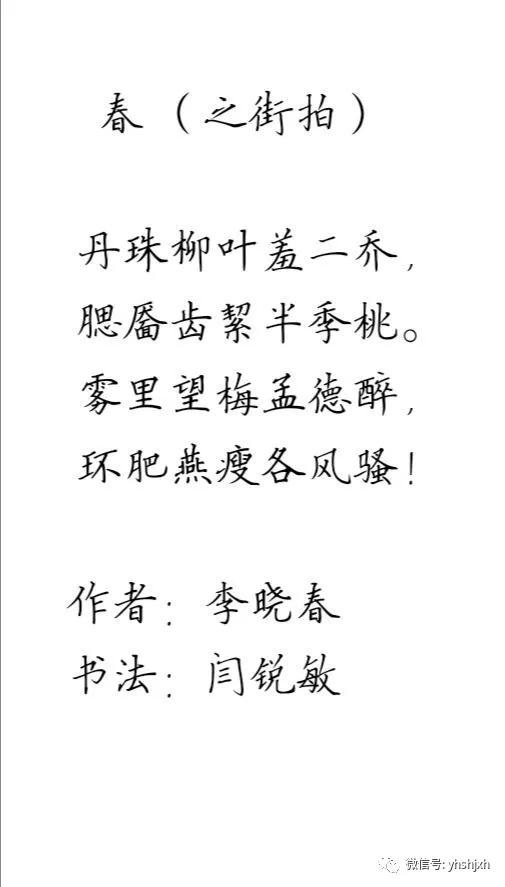 春（之街拍）
丹珠柳叶羞二乔，
腮靥齿絜半季桃。
雾里望梅孟德醉，
环肥燕瘦各风骚！
作者：李晓春
书法：闫锐敏
微信号: yhshjxh